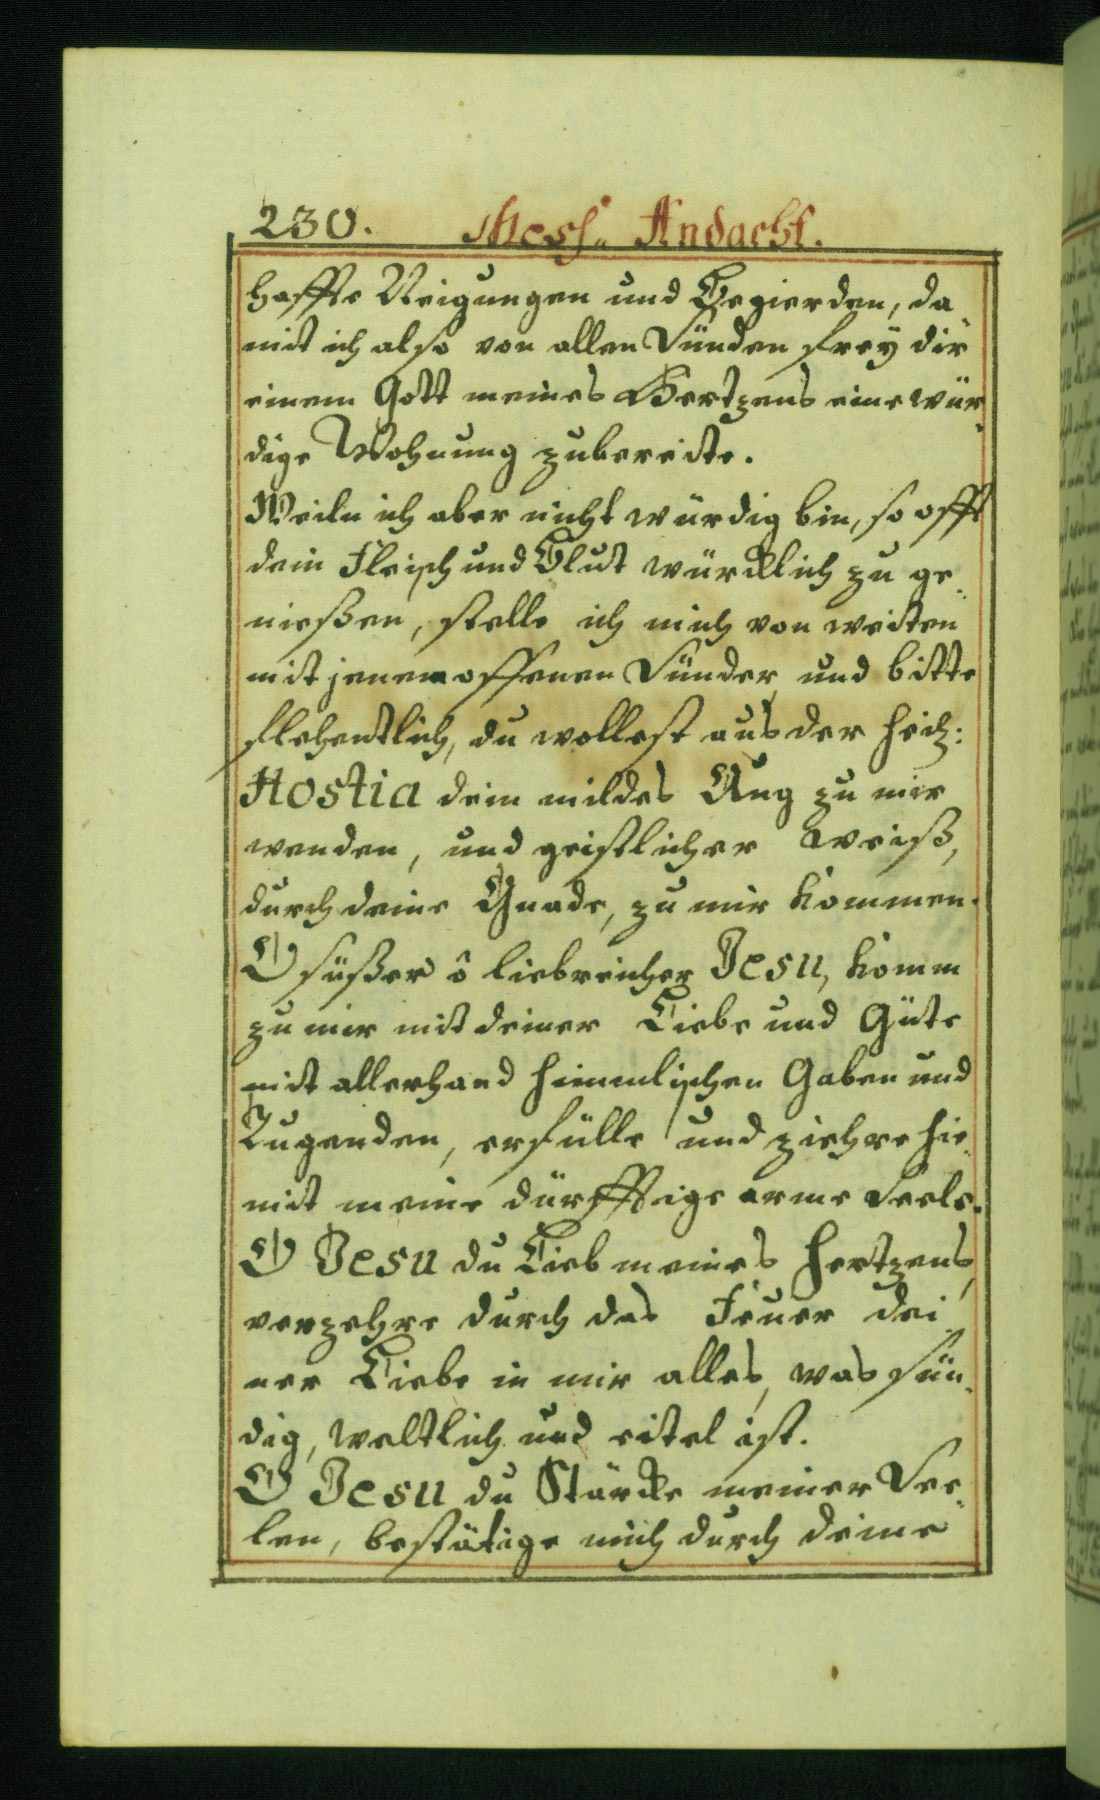 230. Mess-Andacht.
haffte Neigungen und Begierden, da
mit ich also von allen Sünden frey dir
einem Gott meines Hertzens eine wür-
dige Wohnung zubereite.
Weiln ich aber nicht würdig bin, so offt
dein Fleisch und Blut würcklich zu ge-
niessen, stelle ich mich von weiten
mit jenem offenen Sünder, und bitte
flehentlich, du wollest aus der heil:
Hostia dein mildes Aug zu mir
wenden, und geistlicher weiß,
durch deine Gnade, zu mir kommen.
O süßer ô liebreicher Jesu, komm
zu mir mit deiner Liebe und Güte
mit allerhand himmlischen Gaben und
Tugenden, erfülle und ziehre hie-
mit meine dürfftige arme Seele.
O Jesu du Lieb meines Hertzens,
verzehre durch das Feuer dei
ner Liebe in mir alles, was sün-
dig, weltlich und eitel ist.
O Jesu du Stärcke meiner See-
len, bestätige mich durch deine